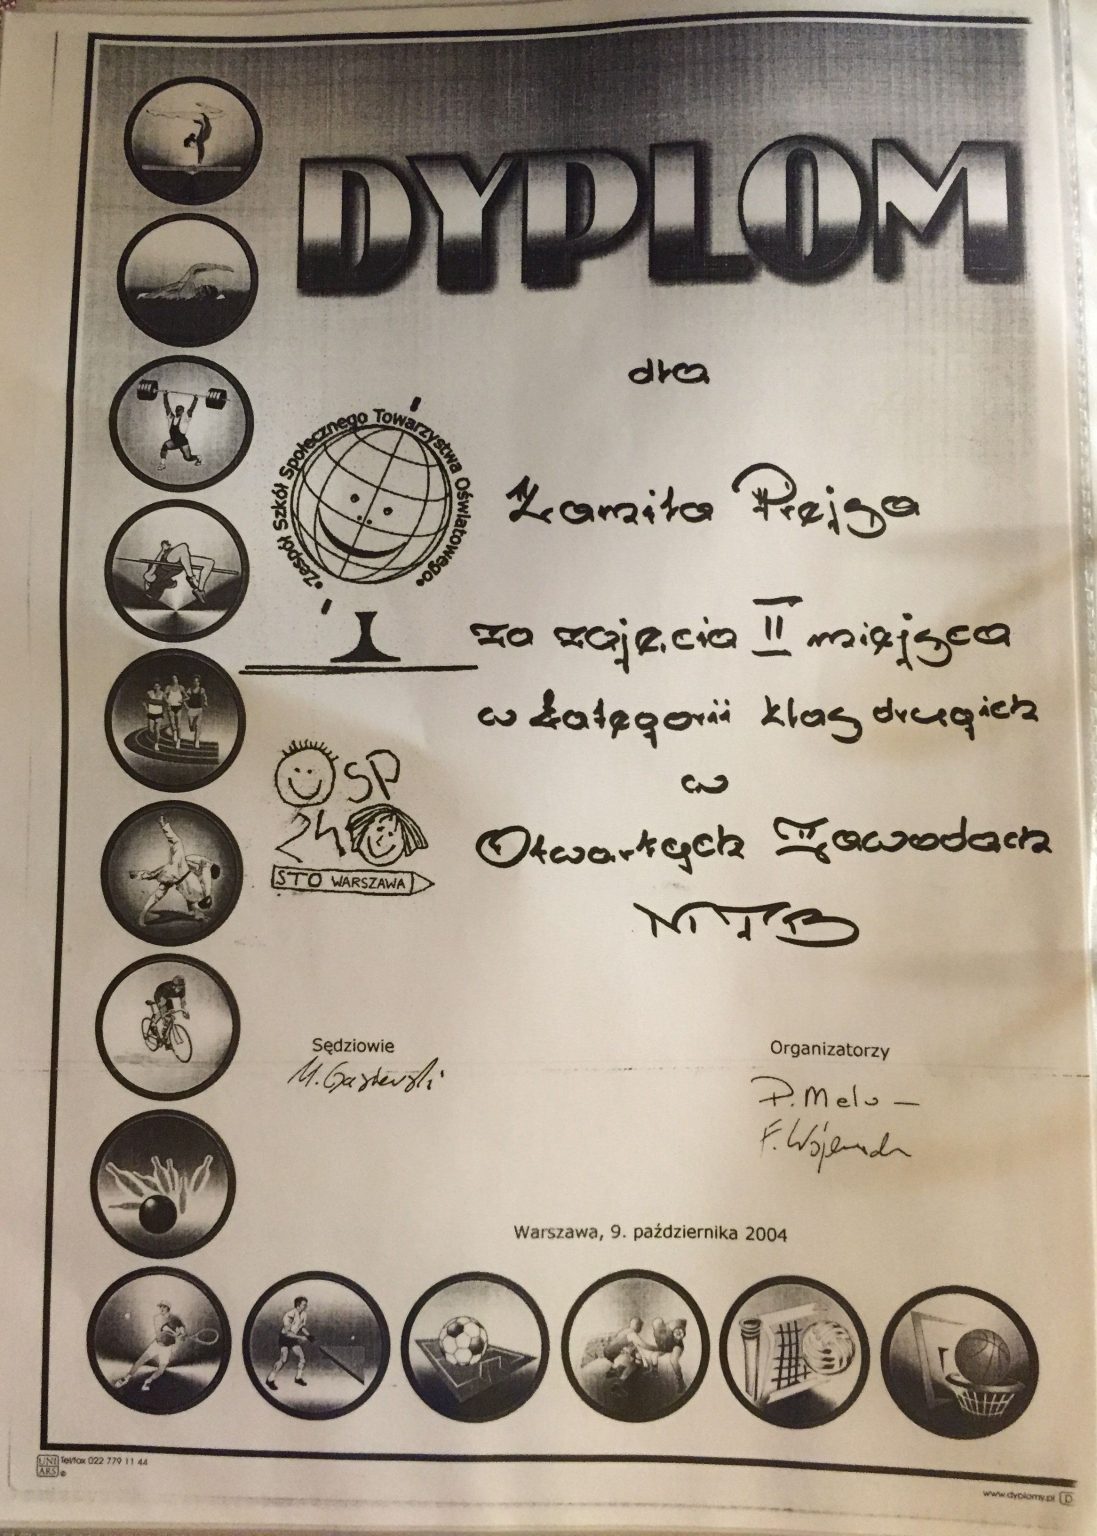 DYPLOM
dla
•Zespół Szkół Społecznego Towarzystwa Oświatowego•
Kamila Prejsa
za zajęcia II miejsca
w kategorii klas drugich
w
Otwartych Zawodach
MTB
SP
24
STO WARSZAWA
Sędziowie
Organizatorzy
P. Melo
Warszawa, 9. października 2004
UNI
ARS
Tel/fax 022 779 11 44
www.dyplomy.pl
D